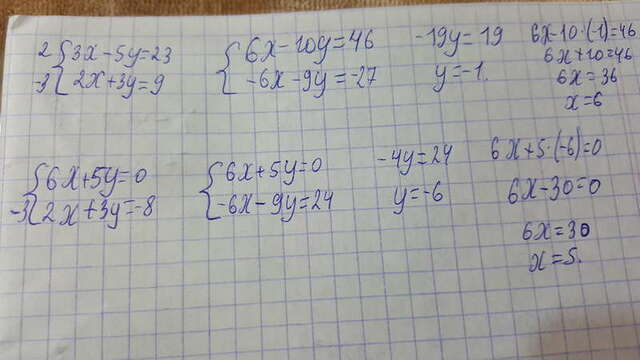 2 { 3x - 5y = 23
-3 { 2x + 3y = 9
{ 6x - 10y = 46
{ -6x - 9y = -27
-19y = 19
y = -1.
6x 10·(-1) = 46
6x + 10 = 46
6x = 36
x = 6
{ 6x + 5y = 0
-3 { 2x + 3y = -8
{ 6x + 5y = 0
{ -6x - 9y = 24
-4y = 24
y = -6
6x + 5·(-6) = 0
6x - 30 = 0
6x = 30
x = 5.